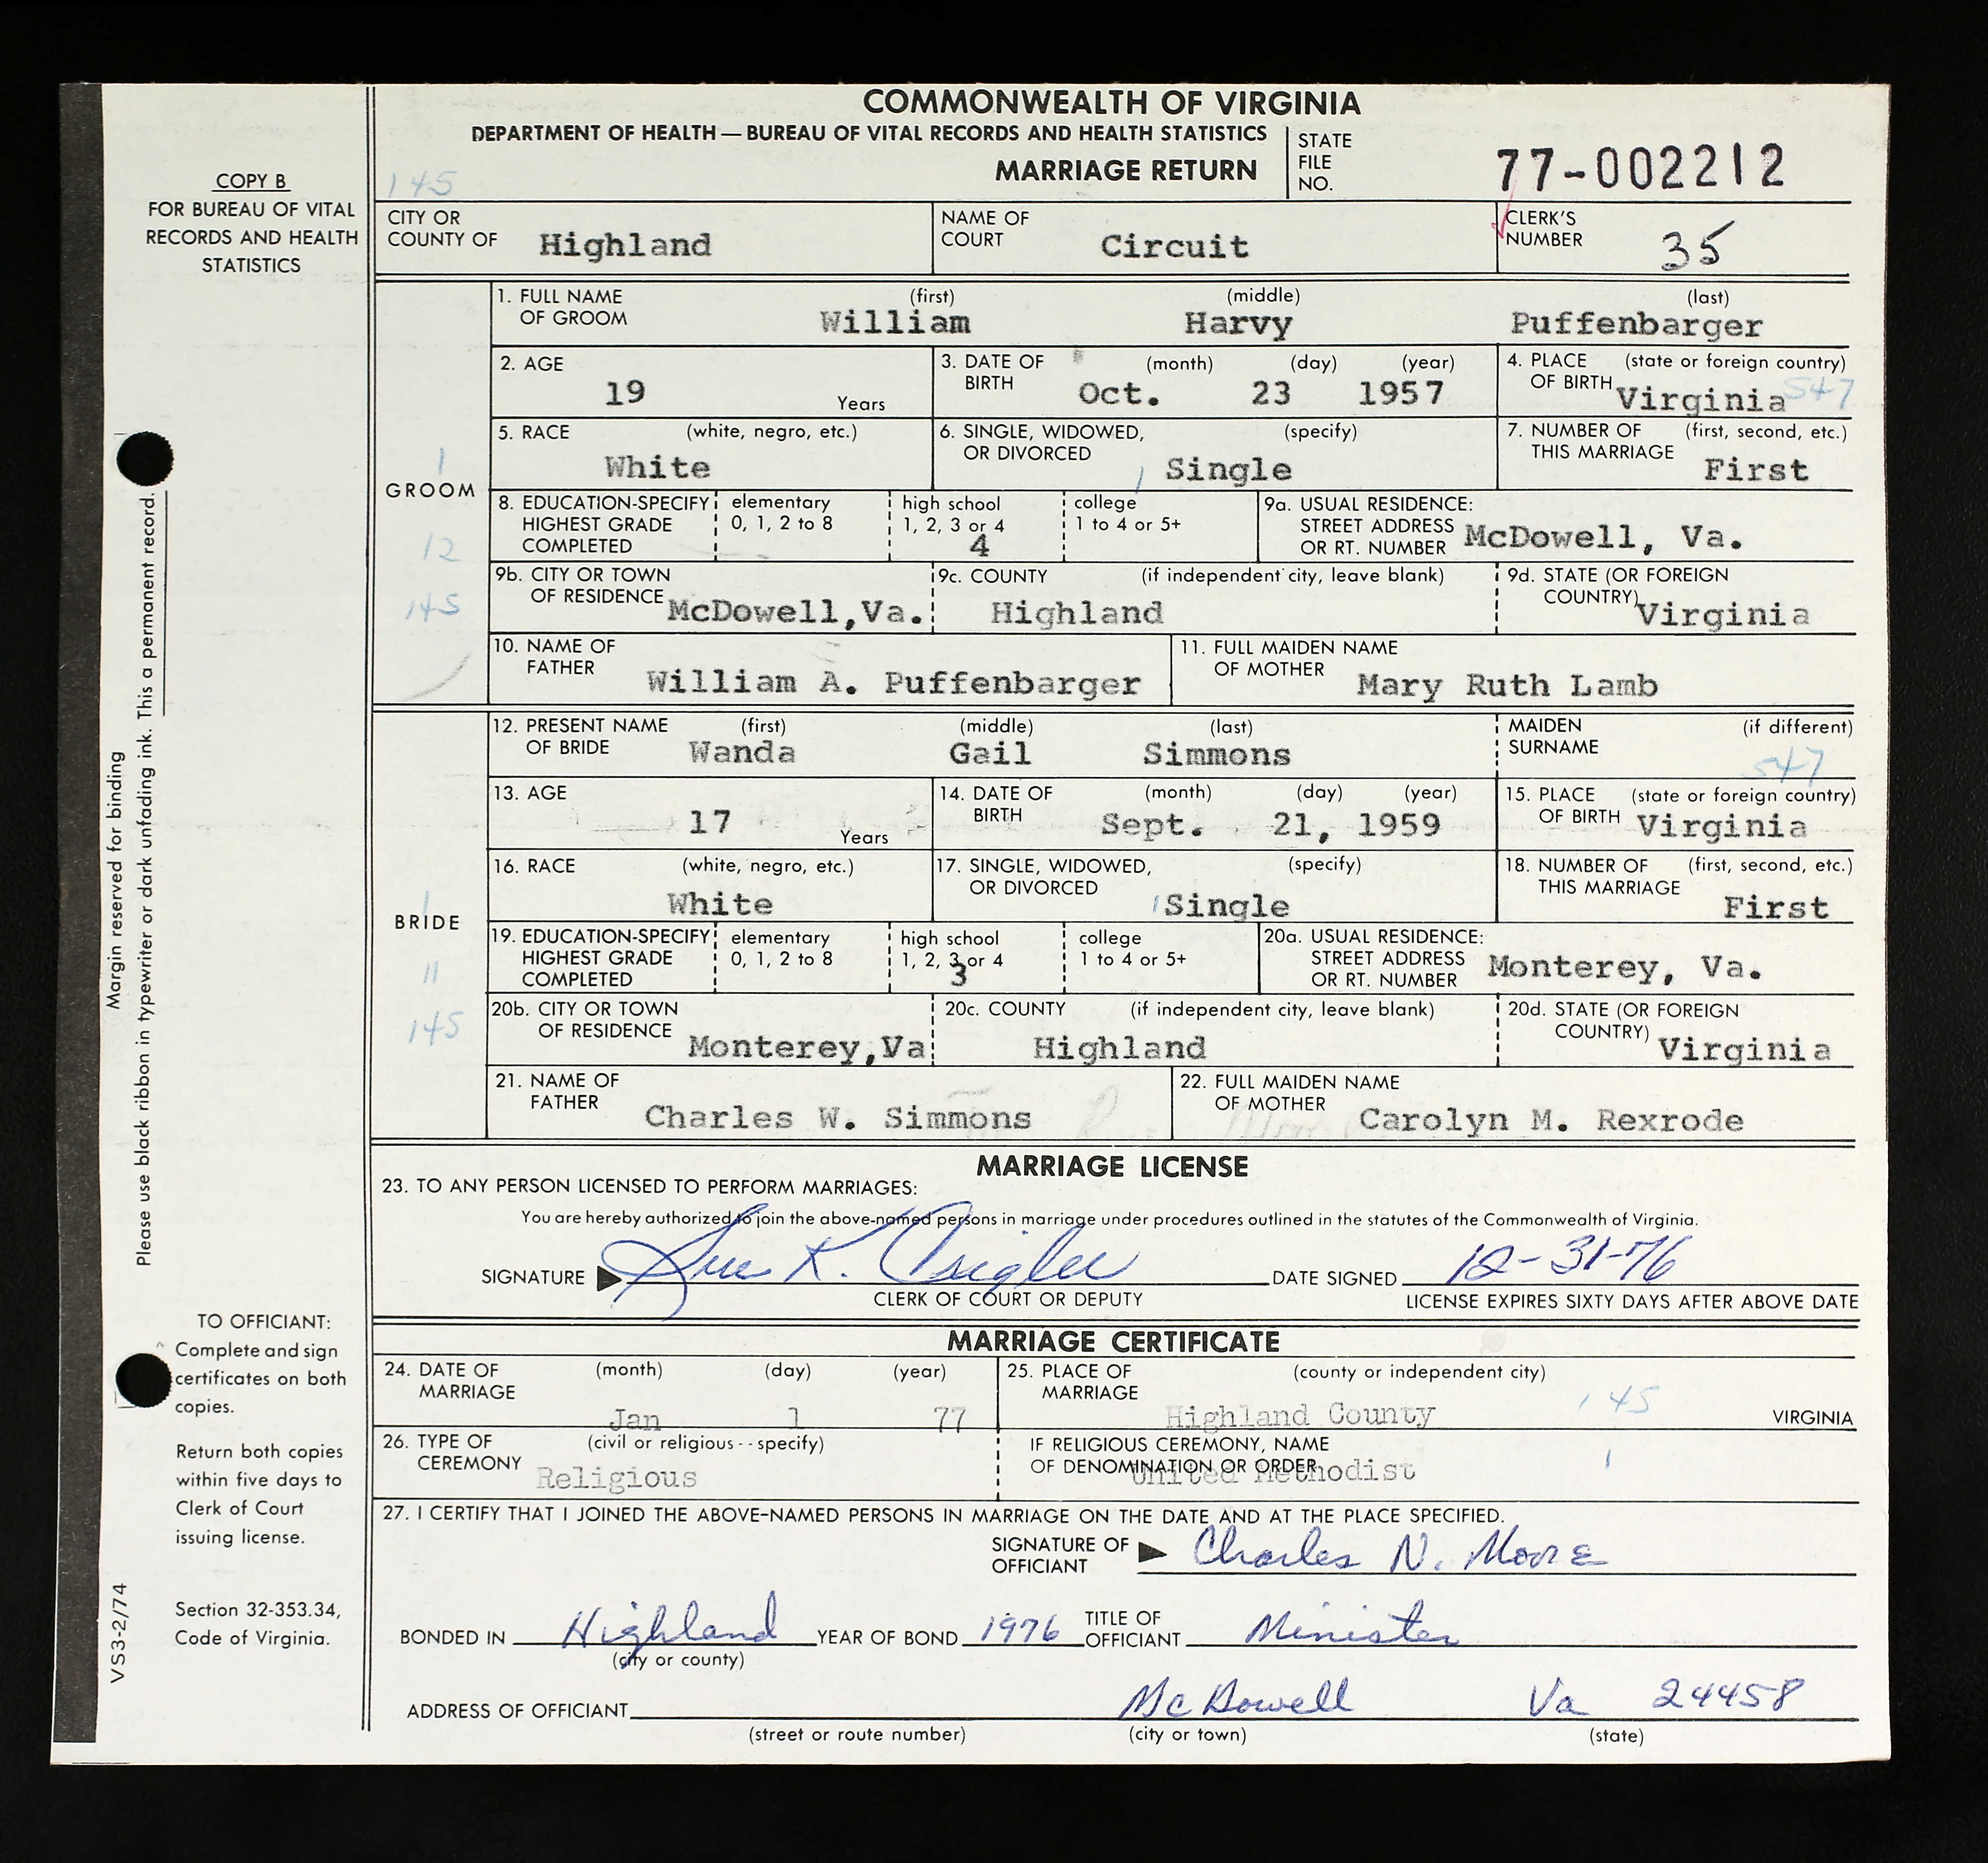 COMMONWEALTH OF VIRGINIA
DEPARTMENT OF HEALTH — BUREAU OF VITAL RECORDS AND HEALTH STATISTICS
MARRIAGE RETURN
STATE FILE NO. 77-002212
COPY B
FOR BUREAU OF VITAL
RECORDS AND HEALTH
STATISTICS
145
CITY OR COUNTY OF Highland
NAME OF COURT Circuit
CLERK'S NUMBER 35
GROOM
1
12
145
1. FULL NAME OF GROOM (first) William (middle) Harvy (last) Puffenbarger
2. AGE 19 Years
3. DATE OF BIRTH (month) Oct. (day) 23 (year) 1957
4. PLACE OF BIRTH (state or foreign country) Virginia 547
5. RACE (white, negro, etc.) White
6. SINGLE, WIDOWED, OR DIVORCED (specify) 1 Single
7. NUMBER OF THIS MARRIAGE (first, second, etc.) First
8. EDUCATION-SPECIFY HIGHEST GRADE COMPLETED elementary 0, 1, 2 to 8 high school 1, 2, 3 or 4 4 college 1 to 4 or 5+
9a. USUAL RESIDENCE: STREET ADDRESS OR RT. NUMBER McDowell, Va.
9b. CITY OR TOWN OF RESIDENCE McDowell,Va.
9c. COUNTY (if independent city, leave blank) Highland
9d. STATE (OR FOREIGN COUNTRY) Virginia
10. NAME OF FATHER William A. Puffenbarger
11. FULL MAIDEN NAME OF MOTHER Mary Ruth Lamb
BRIDE
1
11
145
12. PRESENT NAME OF BRIDE (first) Wanda (middle) Gail (last) Simmons
MAIDEN SURNAME (if different)
547
13. AGE 17 Years
14. DATE OF BIRTH (month) Sept. (day) 21, (year) 1959
15. PLACE OF BIRTH (state or foreign country) Virginia
16. RACE (white, negro, etc.) White
17. SINGLE, WIDOWED, OR DIVORCED (specify) 1 Single
18. NUMBER OF THIS MARRIAGE (first, second, etc.) First
19. EDUCATION-SPECIFY HIGHEST GRADE COMPLETED elementary 0, 1, 2 to 8 high school 1, 2, 3 or 4 3 college 1 to 4 or 5+
20a. USUAL RESIDENCE: STREET ADDRESS OR RT. NUMBER Monterey, Va.
20b. CITY OR TOWN OF RESIDENCE Monterey,Va
20c. COUNTY (if independent city, leave blank) Highland
20d. STATE (OR FOREIGN COUNTRY) Virginia
21. NAME OF FATHER Charles W. Simmons
22. FULL MAIDEN NAME OF MOTHER Carolyn M. Rexrode
MARRIAGE LICENSE
23. TO ANY PERSON LICENSED TO PERFORM MARRIAGES:
You are hereby authorized to join the above-named persons in marriage under procedures outlined in the statutes of the Commonwealth of Virginia.
SIGNATURE K. DATE SIGNED 12-31-76
CLERK OF COURT OR DEPUTY LICENSE EXPIRES SIXTY DAYS AFTER ABOVE DATE
MARRIAGE CERTIFICATE
24. DATE OF MARRIAGE (month) Jan (day) 1 (year) 77
25. PLACE OF MARRIAGE (county or independent city) Highland County 145 VIRGINIA
26. TYPE OF CEREMONY (civil or religious -- specify) Religious
IF RELIGIOUS CEREMONY, NAME OF DENOMINATION OR ORDER United Methodist 1
27. I CERTIFY THAT I JOINED THE ABOVE-NAMED PERSONS IN MARRIAGE ON THE DATE AND AT THE PLACE SPECIFIED.
SIGNATURE OF OFFICIANT Charles N. Moore
BONDED IN Highland (city or county) YEAR OF BOND 1976 TITLE OF OFFICIANT Minister
ADDRESS OF OFFICIANT McDowell Va 24458
(street or route number) (city or town) (state)
Margin reserved for binding
Please use black ribbon in typewriter or dark unfading ink. This a permanent record.
TO OFFICIANT:
Complete and sign
certificates on both
copies.
Return both copies
within five days to
Clerk of Court
issuing license.
Section 32-353.34,
Code of Virginia.
VS3-2/74